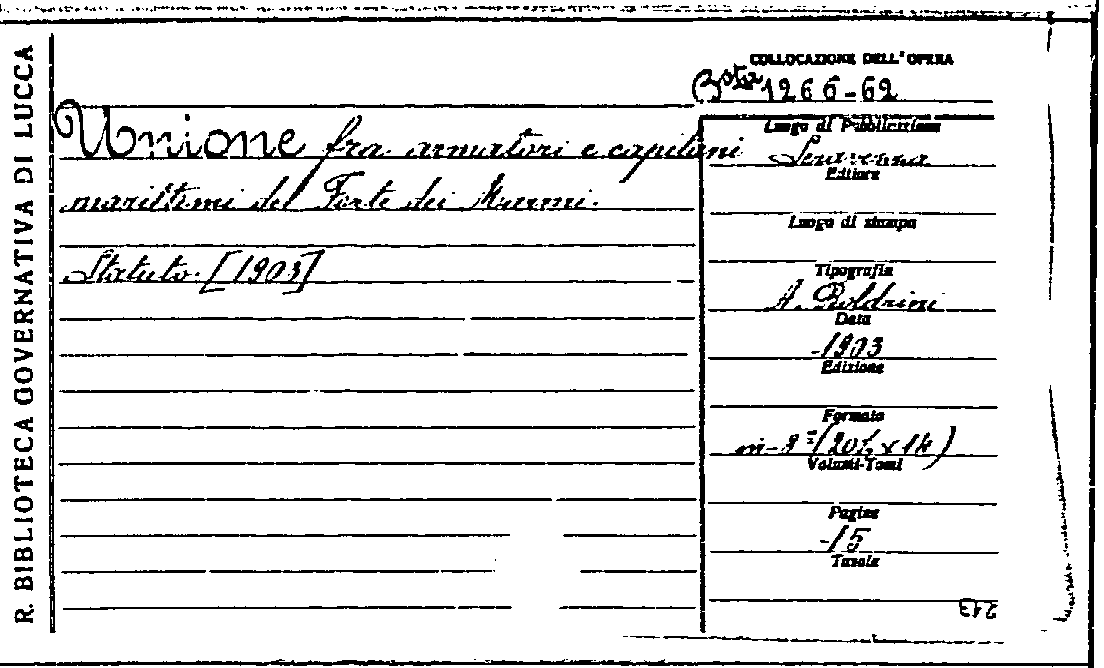 R. BIBLIOTECA GOVERNATIVA DI LUCCA
COLLOCAZIONE DELL'OPERA
Bsta 1266-62
Unione fra armatori e capitani
marittimi del Forte dei Marmi.
Statuto. [1903]
Luogo di Pubblicazione
Seravezza
Editore
Luogo di stampa
Tipografia
A. Boldrini
Data
1903
Edizione
Formato
in-8° (20½ x 14)
Volumi-Tomi
Pagine
15
Tavole
213